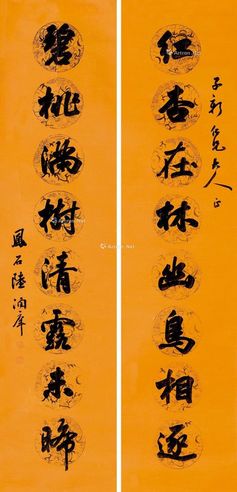 子新仁兄大人正
红杏在林幽鳥相逐
碧桃滿樹清露未晞
鳳石陸潤庠